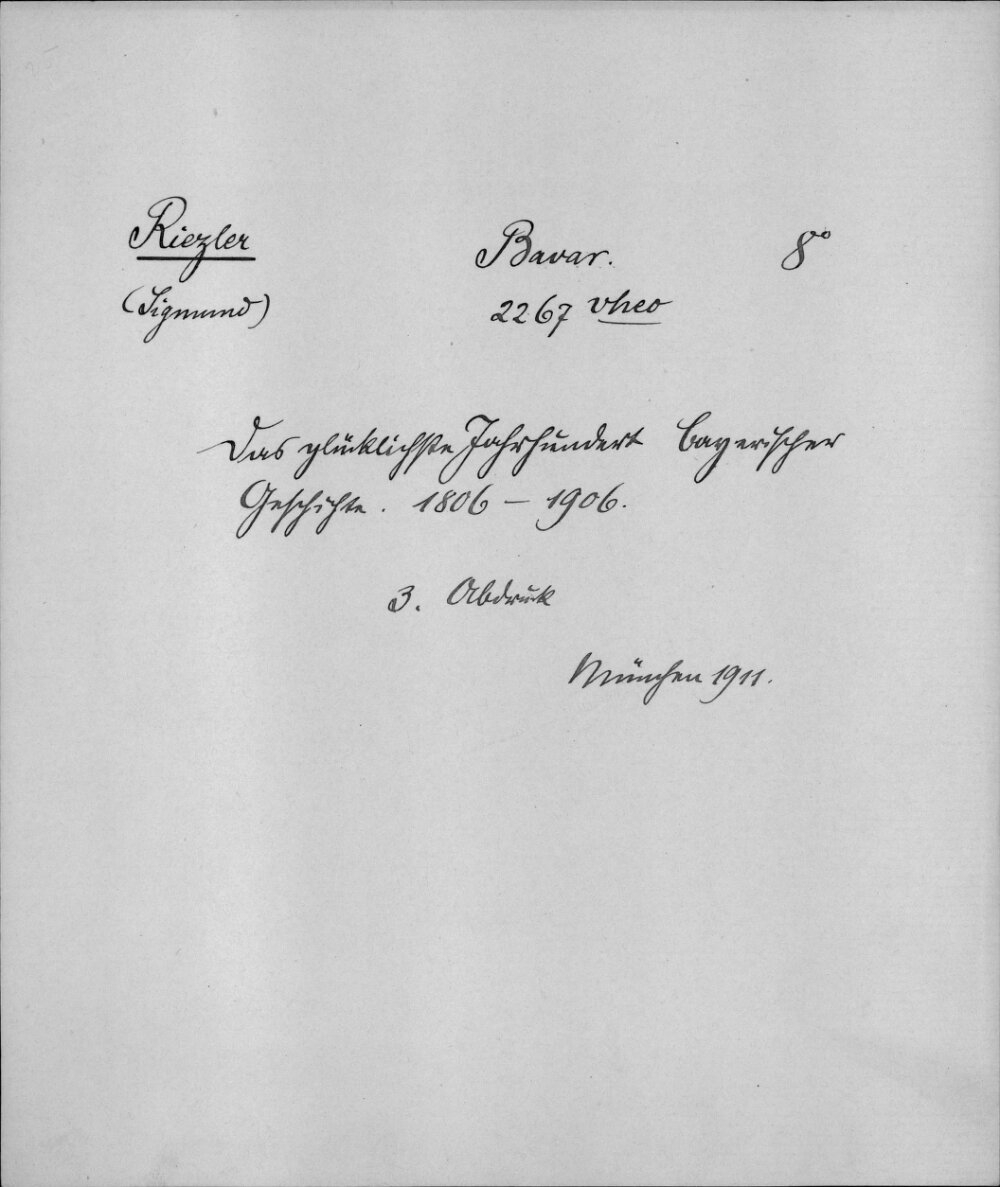 Riezler Bavar. 8°
(Sigmund) 2267 vheo
Das glücklichste Jahrhundert bayerischer
Geschichte. 1806 – 1906.
3. Abdruck
München 1911.